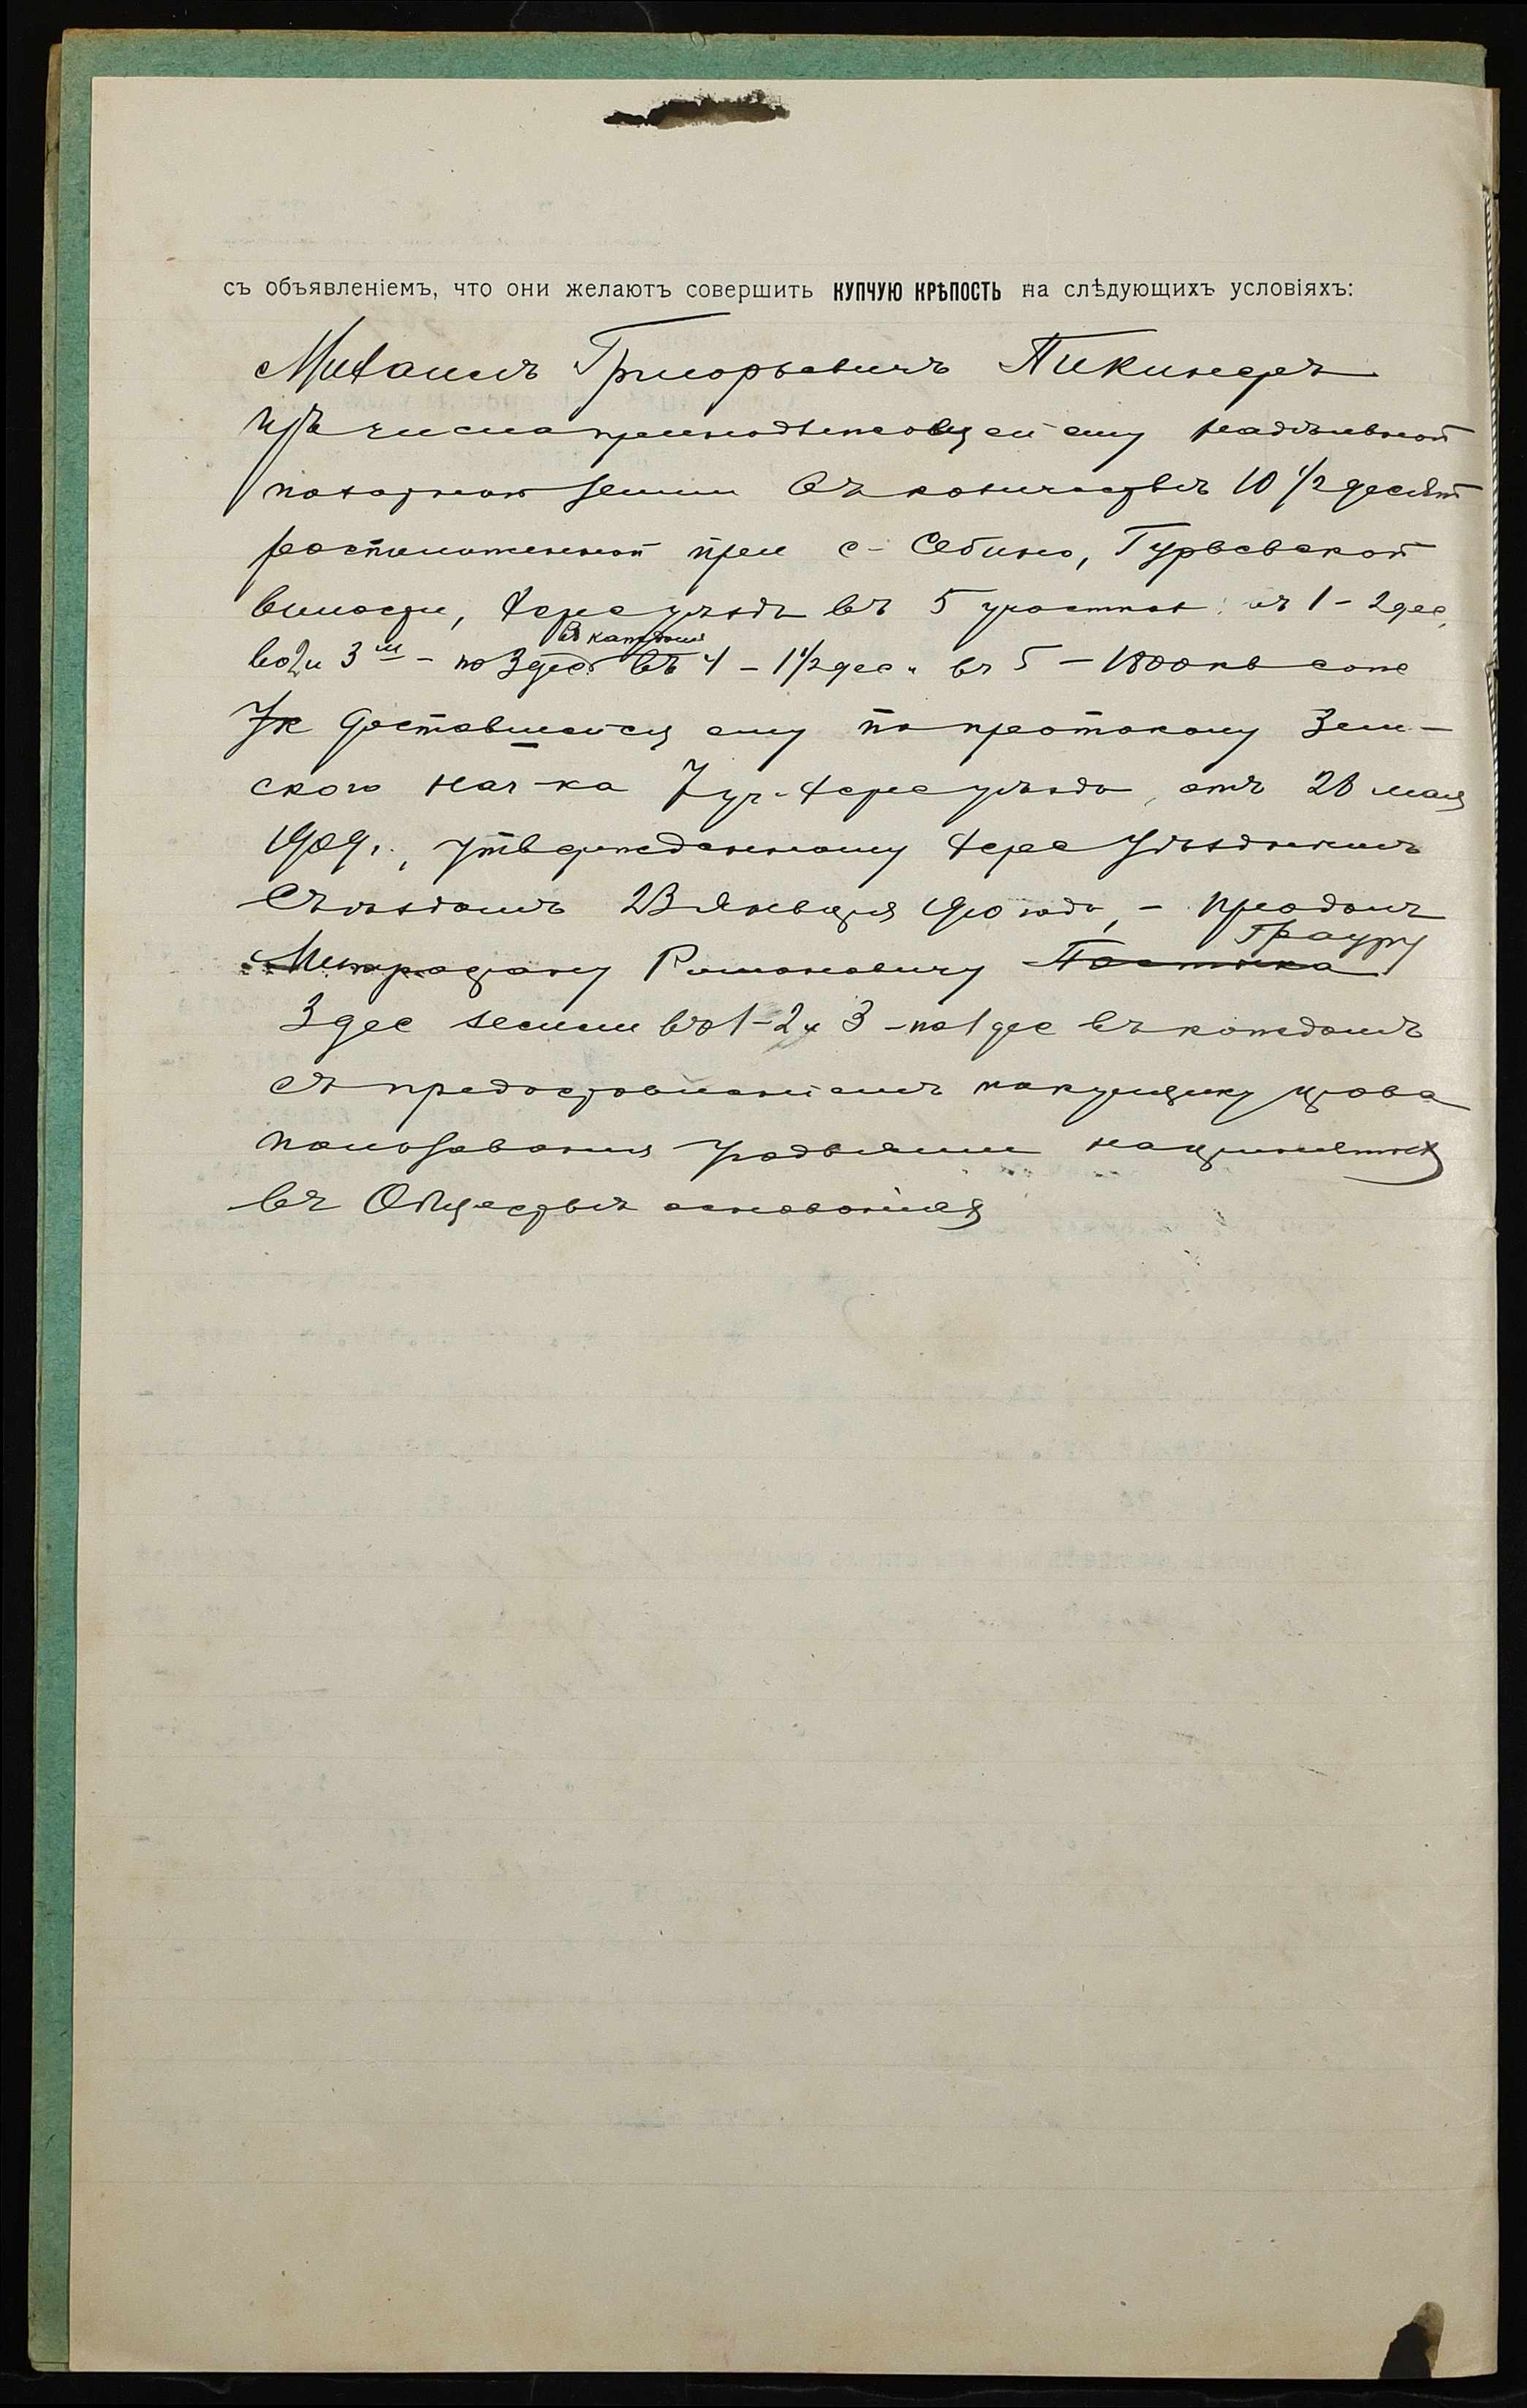 съ объявленіемъ, что они желаютъ совершить КУПЧУЮ КРѢПОСТЬ на слѣдующихъ условіяхъ:
Михаилъ Григорьевичъ Пикинеръ
изъ числа принадлежащей ему надѣльной
пахатной земли въ количествѣ 10 1/2 десят
расположенной при с- Себино, Гурьевской
волости, Херс уѣзда въ 5 участках: въ 1 - 2 дес,
во 2 и 3 м - по 3 дес въ каждомъ въ 4 - 1 1/2 дес и въ 5 - 1800 кв саж
доставшейся ему по протокому Зем-
ского нач-ка 7 уч. Херс уѣзда, отъ 28 мая
1909 г., утвержденному Херс Уѣзднымъ
Съѣздомъ 23 Января 1910 года, - продалъ
Митрофану Романовичу Грауру
3 дес земли во 1-2 и 3 - по 1 дес въ каждомъ
съ предоставленіемъ покупщику права
пользованія угодьями на принятых
въ Обществѣ основаніях